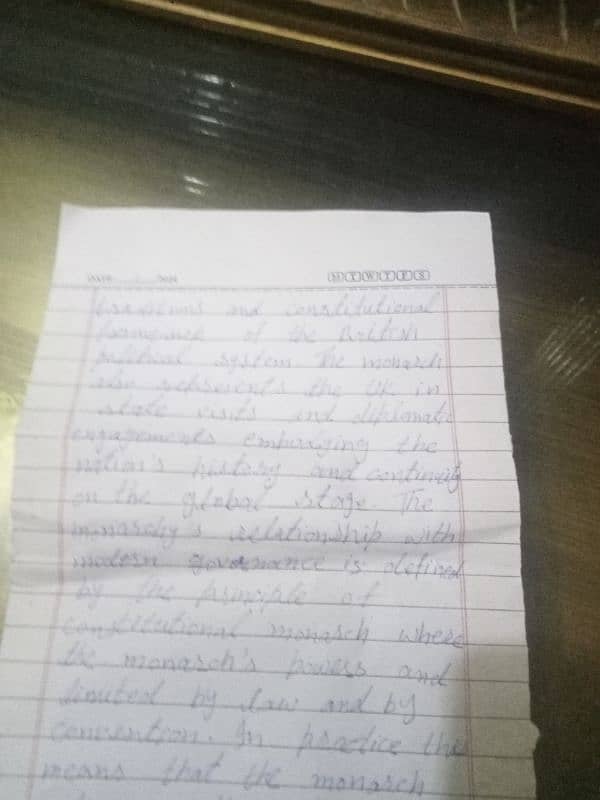 M T W T F S
traditions and constitutional
framework of the British
political system. The monarch
also represents the UK in
state visits and diplomatic
engagements embodying the
nation's history and continuity
on the global stage. The
monarchy's relationship with
modern governance is defined
by the principle of
constitutional monarch where
the monarch's powers and
limited by law and by
convention. In practice the
means that the monarch